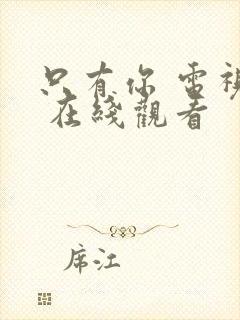 只有你 電視
在綫觀看
席江